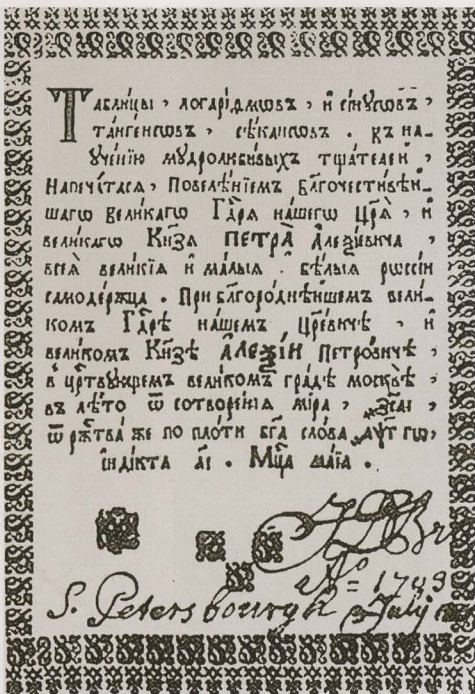 Таблицы , логарідмѡвъ , и сѵнусѡвъ ,
тангенсѡвъ , сѣкансѡвъ . къ на-
ученію мудролюбивыхъ тщателей ,
Напечатася , Повелѣніемъ бл҃гочестивѣи-
шагѡ великагѡ Гдⷭ҇ря нашегѡ Цр҃я , и
великагѡ Кн҃зя ПЕТРА Алеѯіевича ,
всея великія и малыя . бѣлыя рѡссіи
самодержца . При бл҃городнѣишемъ вели-
комъ Гдⷭ҇рѣ нашемъ цр҃евичѣ , и
великомъ Кн҃зѣ АЛЕѮІИ Петровичѣ ,
в цр҃твующемъ великомъ градѣ москвѣ ,
въ лѣто ѿ сотворенія міра ,
ѿ ржⷭ҇тва же по плоти бг҃а слова ҂аѱг гѡ,
індікта аі . Мцⷭ҇а маіа .
1703
S. Petersbourgh July